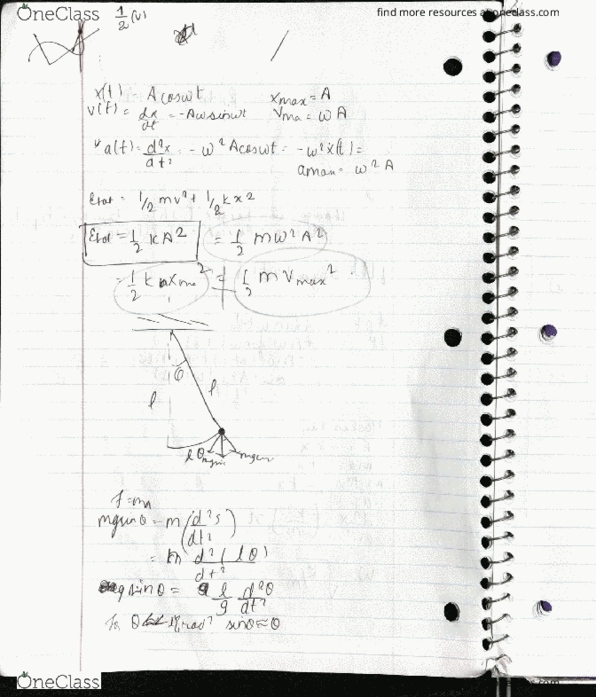 OneClass
find more resources at oneclass.com
1/2 (v)
x(t) = A cos ωt    x max = A
v(t) = dx/dt = -Aω sin ωt    v ma = ω A
a(t) = d²x/dt² = -ω² A cos ωt = -ω² x(t) =
a max = ω² A
Etot = 1/2 mv² + 1/2 k x 2
Etot = 1/2 k A² = 1/2 m ω² A²
= 1/2 k = 1/2 m v max²
θ
l
l
l θ
F = ma
mg sin θ = m (d²s/dt²)
= m d²(lθ)/dt²
sin θ = l/g d²θ/dt²
θ rad sin θ ≈ θ
OneClass